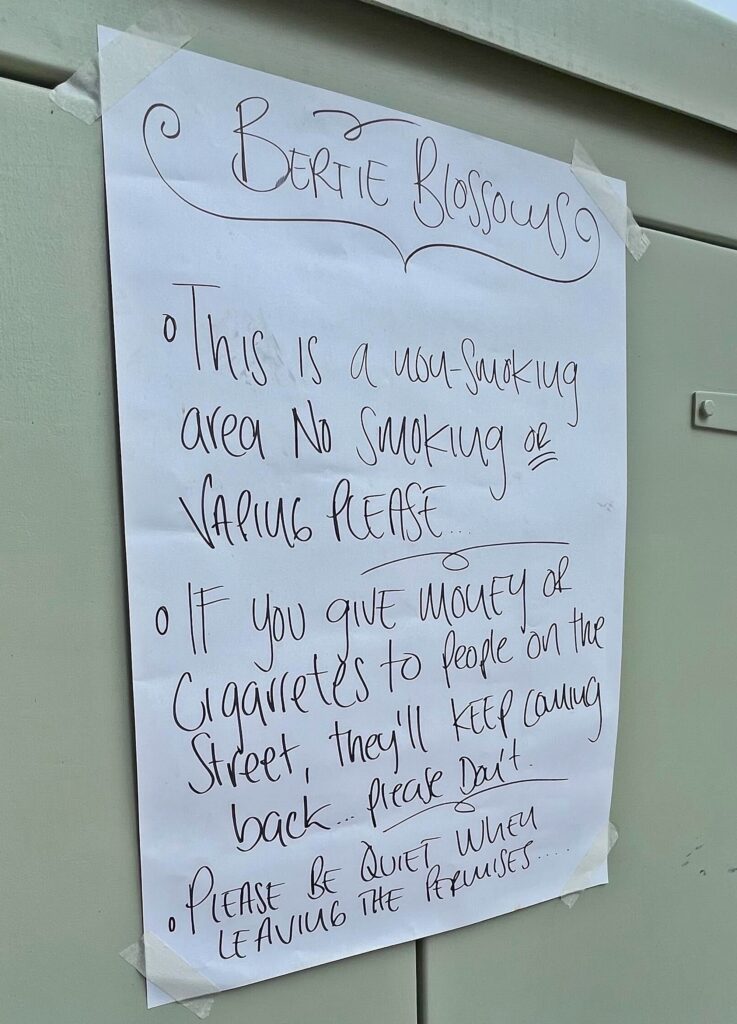 BERTIE BLOSSOMS
o THIS IS A NON-SMOKING
area NO SMOKING OR
VAPING PLEASE...
o IF YOU GIVE MONEY OR
Cigarretes to people on the
Street, they'll KEEP coming
back... please Don't.
o PLEASE BE QUIET WHEN
LEAVING THE PERMISES....